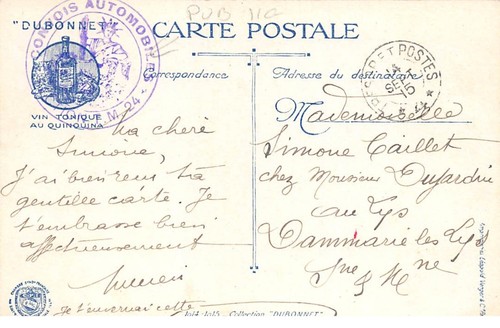 "DUBONNET"
VIN TONIQUE
AU QUINQUINA
CONVOIS AUTOMOBILES
M-24
PUB 110
CARTE POSTALE
Correspondance
Adresse du destinataire
TRESOR ET POSTES
SEPT
15
Ma chère
Simone,
J'ai bien reçu ta
gentille carte. Je
t'embrasse bien
affectueusement
Je t'enverrai cette
Mademoiselle
Simone Caillet
chez Monsieur Dujardin
au Lys
Dammarie les Lys
Sne & Mne
1914-1915 - Collection "DUBONNET"